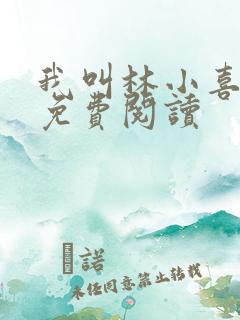 我叫林小喜
免費閱讀
諾
未任同意禁止轉載